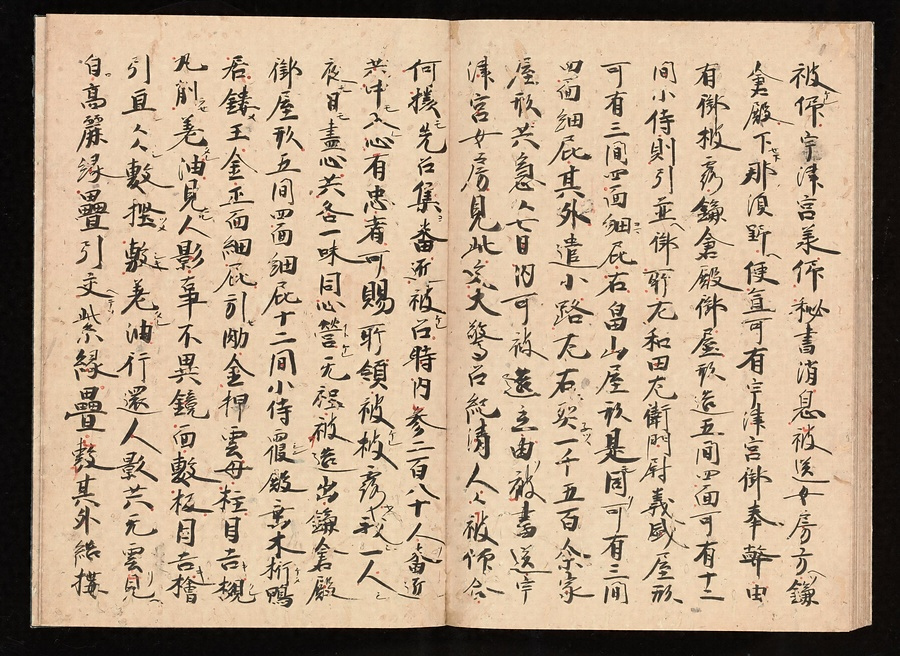 被仰宇津宮義仰秘書消息被送女房方鎌
倉殿下那須野便宜可有宇津宮御奉幣由
有御披露鎌倉殿御屋形造五間四面可有十二
間小侍則引並御所左和田左衛門尉義盛屋形
可有三間四面細庇右畠山屋形是同可有三間
四面細庇其外遣小路左右 一千五百余家
屋形共急々七日内可被造立由被書送宇
津宮女房見此文大驚召紀清人々被仰合
何様先召集番匠被召時内参二百八十人番匠
共中 心有忠者可賜所領被披露 一人
夜日盡心共各一味同心營无程被造出鎌倉殿
御屋形五間四面細庇十二間小侍寝殿 木桁鴨
居鏤玉金正面細庇引 金押雲母柱目吉槻
丸削 油見人影事不異鏡面敷板目吉檜
引直人々敷 敷 油行還人影共无雲見
自高麗縁疊引交紫縁疊敷其外結構